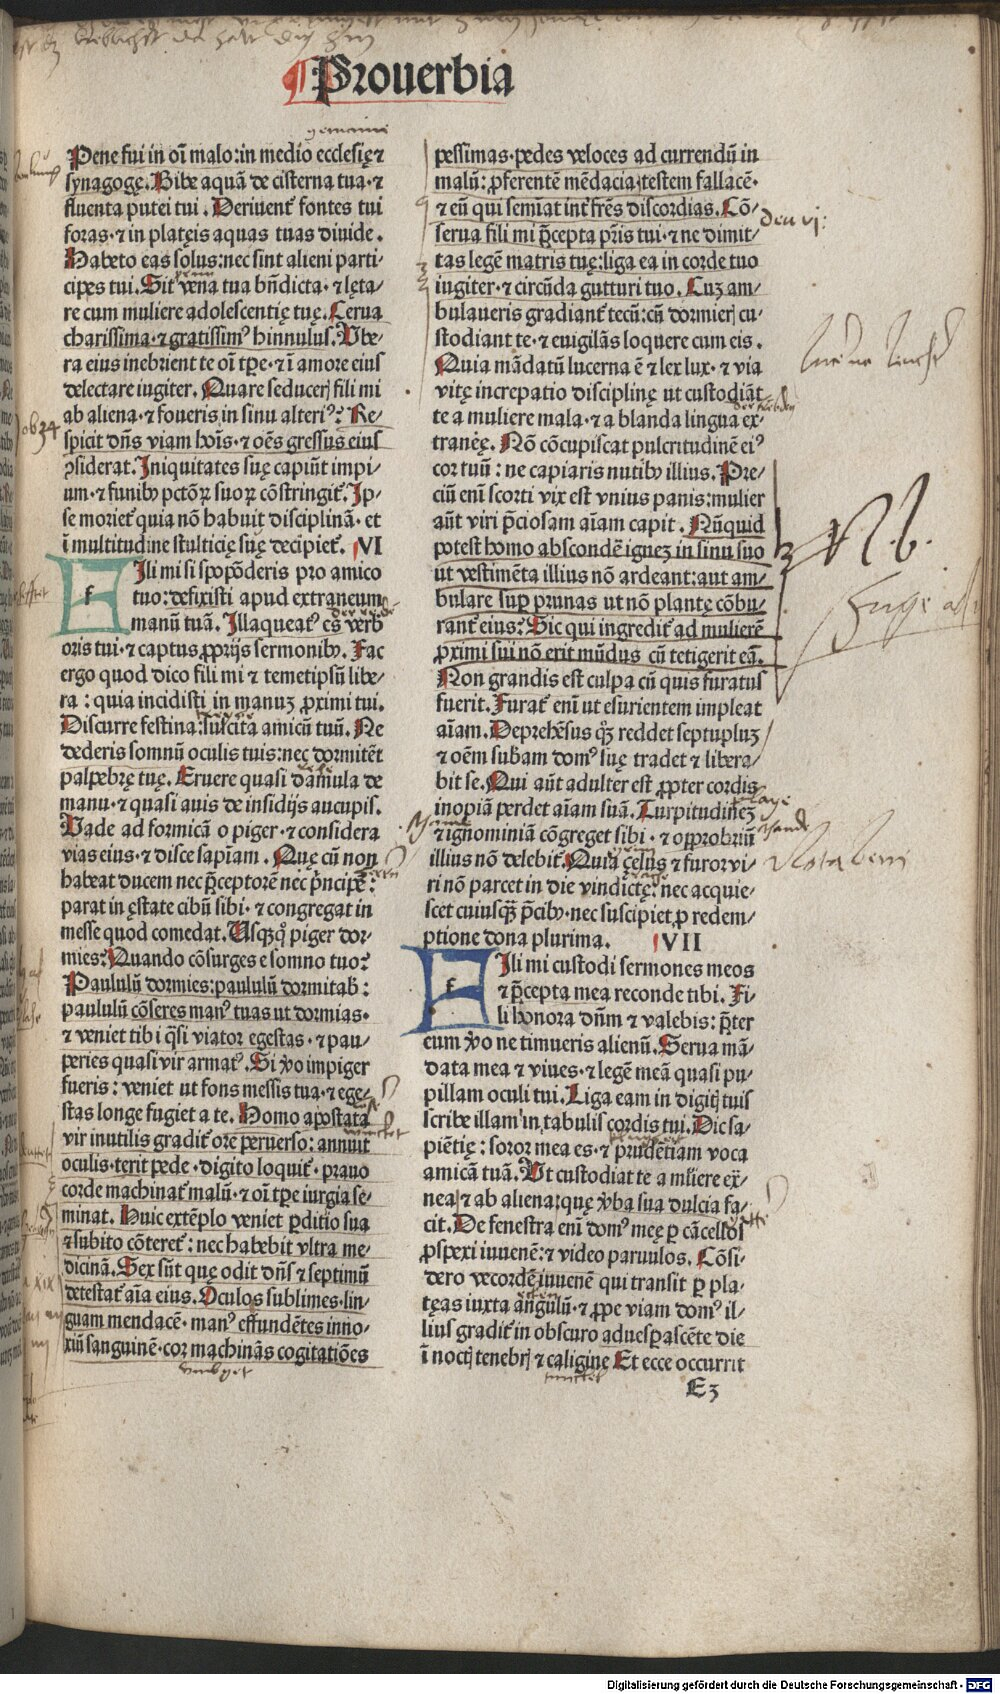 ¶Prouerbia
Pene fui in oi̅ malo: in medio ecclesię ⁊
synagogę. Bibe aquā de cisterna tua · ⁊
fluenta putei tui . Deriuent̅ fontes tui
foras · ⁊ in platęis aquas tuas diuide .
Habeto eas solus: nec sint alieni parti-
cipes tui. Sit vena tua bn̄dicta · ⁊ lęta-
re cum muliere adolescentię tuę. Cerua
charissima · ⁊ gratissimꝰ hinnulus. Vbe-
ra eius inebrient te oi̅ tp̄e · ⁊ i̅ amore eius
delectare iugiter. Quare seducerꝭ fili mi
ab aliena · ⁊ foueris in sinu alteriꝰ? Re-
spicit dn̄s viam hoi̅s · ⁊ oēs gressus eius
ꝯsiderat. Iniquitates suę capiūt impi-
um · ⁊ funibꝫ pctōꝝ suoꝝ cōstringit̅. Ip-
se moriet̅ quia nō habuit disciplinā · et
i̅ multitudine stulticię suę decipiet̅. ¶VI
fIli mi si spopōderis pro amico
tuo: defixisti apud extraneum
manū tuā. Illaqueatꝰ es v̄erb
oris tui · ⁊ captus ꝓprijs sermonibꝫ. Fac
ergo quod dico fili mi ⁊ temetipsū libe-
ra : quia incidisti in manuꝫ ꝓximi tui.
Discurre festina: suscita amicū tuū. Ne
dederis somnū oculis tuis: nec dormitēt
palpebrę tuę. Eruere quasi dāmula de
manu · ⁊ quasi auis de insidijs aucupis.
Vade ad formicā o piger · ⁊ considera
vias eius · ⁊ disce sapi̅am . Quę cū non
habeat ducem nec p̄ceptorē nec p̄ncipē :
parat in ęstate cibū sibi · ⁊ congregat in
messe quod comedat. Usqꝫqͦ piger dor-
mies? Quando cōsurges e somno tuo?
Paululū dormies: paululū dormitab̄ :
paululū cōseres manꝰ tuas ut dormias ·
⁊ veniet tibi q̄si viator egestas · ⁊ pau-
peries quasi vir armatꝰ. Si v̄o impiger
fueris : veniet ut fons messis tua · ⁊ ege-
stas longe fugiet a te. Homo apostata
vir inutilis gradit̅ ore peruerso : annuit
oculis · terit pede · digito loquit̅ · prauo
corde machinat̅ malū · ⁊ oi̅ tp̄e iurgia se-
minat. Huic extēplo veniet p̱ditio sua
⁊ subito cōteret̅ : nec habebit vltra me-
dicinā. Sex sūt quę odit dn̄s ⁊ septimū
detestat̅ ai̅a eius. Oculos sublimes · lin-
guam mendacē · manꝰ effundētes inno-
xiū sanguinē · cor machinās cogitatiōes
pessimas · pedes veloces ad currendū in
malū: ꝓferentē mēdacia testem fallacē ·
⁊ eū qui semi̅at int̅ fr̄es discordias. Cō-
serua fili mi p̄cepta pr̄is tui · ⁊ ne dimit-
tas legē matris tuę: liga ea in corde tuo
iugiter · ⁊ circūda gutturi tuo. Cuꝫ am-
bulaueris gradiant̅ tecū: cū dormierꝭ cu-
stodiant te · ⁊ euigilās loquere cum eis .
Quia mādatū lucerna ē ⁊ lex lux · ⁊ via
vitę increpatio disciplinę ut custodiāt
te a muliere mala · ⁊ a blanda lingua ex-
tranęę. Nō cōcupiscat pulcritudinē eiꝰ
cor tuū : ne capiaris nutibꝫ illius. Pre-
ciū eni̅ scorti vix est vnius panis: mulier
aūt viri p̄ciosam ai̅am capit . Nūquid
potest homo abscondē ignez in sinu suo
ut vestimēta illius nō ardeant: aut am-
bulare suꝑ prunas ut nō plantę cōbu-
rant̅ eius? Sic qui ingredit̅ ad mulierē
ꝓximi sui nō erit mūdus cū tetigerit eā.
Non grandis est culpa cū quis furatus
fuerit. Furat̅ eni̅ ut esurientem impleat
ai̅am. Deprehēsus qͦꝫ reddet septupluꝫ
⁊ oēm sub̄am domꝰ suę tradet ⁊ libera-
bit se. Qui aūt adulter est ꝓpter cordis
inopiā perdet ai̅am suā. Turpitudineꝫ
⁊ ignominiā cōgreget sibi · ⁊ opprobriū
illius nō delebit̅. Quia çelus ⁊ furor vi-
ri nō parcet in die vindictę: nec acquie-
scet cuiusqꝫ p̄cibꝫ · nec suscipiet ꝑ redem-
ptione dona plurima. ¶VII
fIli mi custodi sermones meos
⁊ p̄cepta mea reconde tibi. Fi-
li honora dn̄m ⁊ valebis: p̄ter
eum v̄o ne timueris alienū. Serua mā-
data mea ⁊ viues · ⁊ legē meā quasi pu-
pillam oculi tui. Liga eam in digitꝭ tuis
scribe illam in tabulis cordis tui. Dic sa-
piētię : soror mea es · ⁊ prudētiam voca
amicā tuā. Vt custodiat te a mliere ex̄-
nea ⁊ ab aliena: quę v̄ba sua dulcia fa-
cit. De fenestra eni̅ domꝰ meę ꝑ cācellos
ꝓspexi iuuenē: ⁊ video paruulos. Cōsi-
dero vecordē iuuenē qui transit ꝑ pla-
tęas iuxta angulū · ⁊ ꝓpe viam domꝰ il-
lius gradit̅ in obscuro aduesꝑascēte die
i̅ noctꝭ tenebrꝭ ⁊ caligine Et ecce occurrit
E3
Nb.